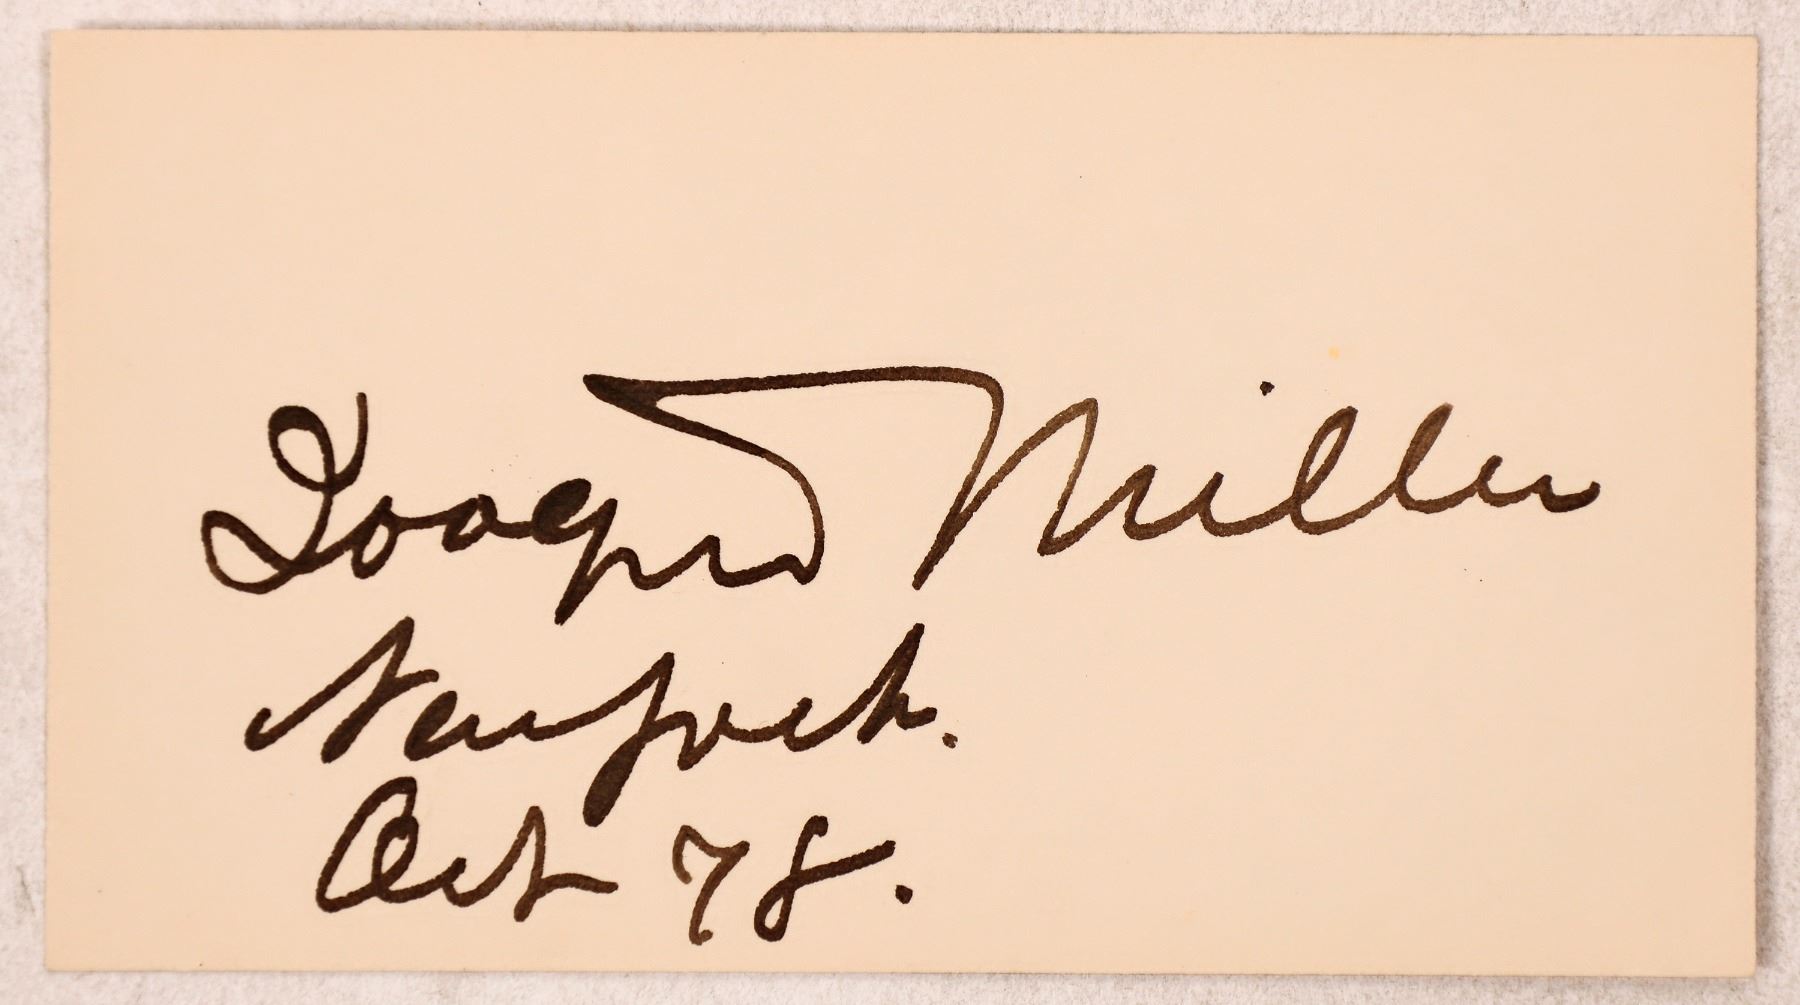 Joaquin Miller
New York.
Oct 78.